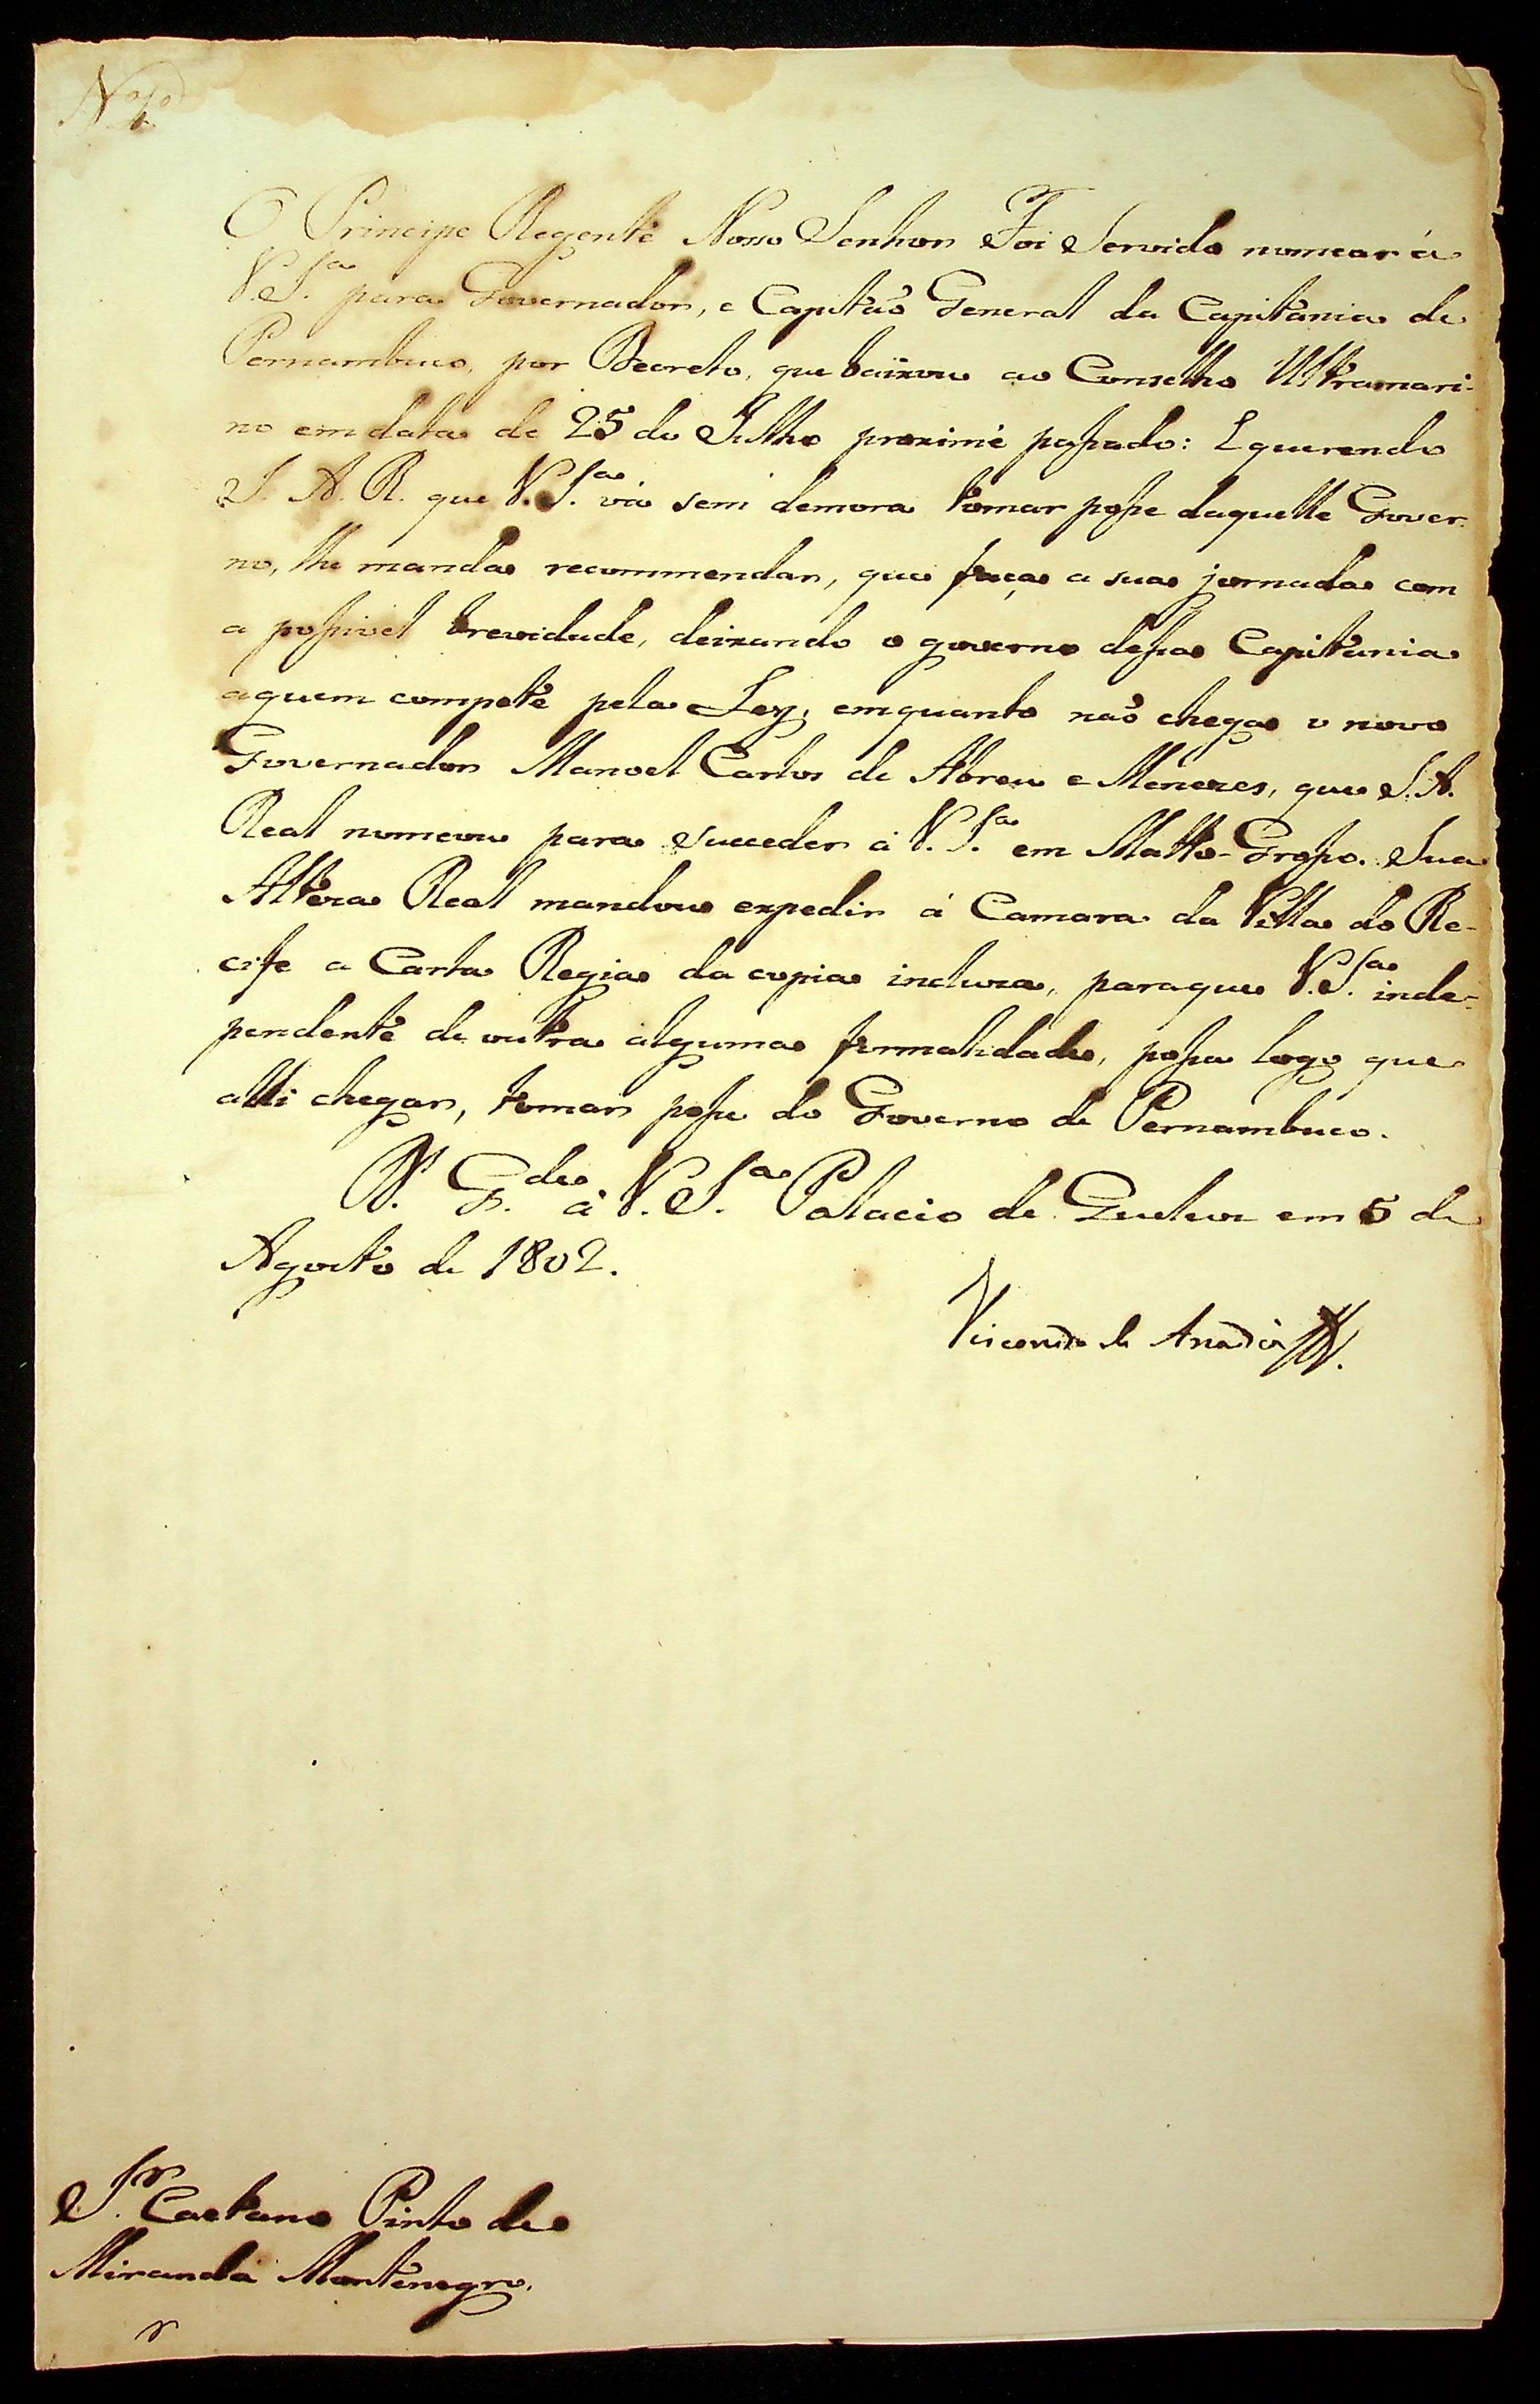 O Principe Regente Nosso Senhor Foi Servido nomear á
V. S.ª para Governador, e Capitaõ General da Capitania de
Pernambuco, por Decreto, que baixou ao Conselho Ultramari-
no em data de 25 de Julho proximé passado: E querendo
S. A. R. que V. S.ª vá sem demora tomar posse daquelle Gover-
no, lhe manda recommendar, que faça a sua jornada com
a possivel brevidade, deixando o governo dessa Capitania
a quem compete pela Ley, emquanto naõ chega o novo
Governador Manoel Carlos de Abreu e Menezes, que S. A.
Real nomeou para succeder á V. S.ª em Matto-Grosso. Sua
Alteza Real mandou expedir á Camara da Villa do Re-
cife a Carta Regia da copia incluza, paraque V. S.ª inde-
pendente de outra alguma formalidade, possa logo que
alli chegar, tomar posse do Governo de Pernambuco.
D.s G.de á V. S.ª Palacio de Queluz em 5 de
Agosto de 1802.
Visconde de Anadia
S.r Caetano Pinto de
Miranda Montenegro.